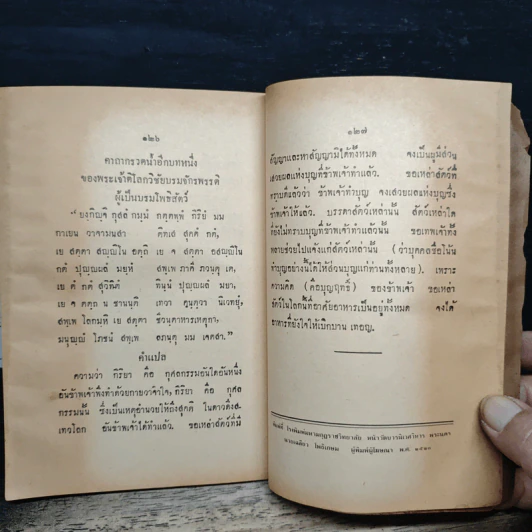 ๑๒๖
คาถากรวดน้ำอีกบทหนึ่ง
ของพระเจ้าติโลกวิชัยบรมจักรพรรดิ
ผู้เป็นบรมโพธิสัตว์
“ยงฺกิญฺจิ กุสลํ กมฺมํ กตฺตพฺพํ กิริยํ มม
กาเยน วาจามนสา ติทเส สุคตํ กตํ,
เย สตฺตา สญฺญิโน อตฺถิ เย จ สตฺตา อสญฺญิโน
กตํ ปุญฺญผลํ มยฺหํ สพฺเพ ภาคี ภวนฺตุ เต,
เย ตํ กตํ สุวิทิตํ ทินฺนํ ปุญฺญผลํ มยา,
เย จ ตตฺถ น ชานนฺติ เทวา คนฺตฺวา นิเวทยุํ,
สพฺเพ โลกมฺหิ เย สตฺตา ชีวนฺตาหารเหตุกา,
มนุญฺญํ โภชนํ สพฺเพ ลภนฺตุ มม เจตสา.”
คำแปล
ความว่า กิริยา คือ กุศลกรรมอันใดอันหนึ่ง
อันข้าพเจ้าพึงทำด้วยกายวาจาใจ, กิริยา คือ กุศล
กรรมนั้น ซึ่งเป็นเหตุอำนวยให้ถึงสุคติ ในดาวดึงส-
เทวโลก อันข้าพเจ้าได้ทำแล้ว. ขอเหล่าสัตว์ที่มี
๑๒๗
สัญญาและหาสัญญามิได้ทั้งหมด จงเป็นผู้มีส่วน
เสวยผลแห่งบุญที่ข้าพเจ้าทำแล้ว. ขอเหล่าสัตว์ที่
ทราบดีแล้วว่า ข้าพเจ้าทำบุญ จงเสวยผลแห่งบุญซึ่ง
ข้าพเจ้าให้แล้ว. บรรดาสัตว์เหล่านั้น สัตว์เหล่าใด
ที่ยังไม่ทราบบุญที่ข้าพเจ้าทำแล้วนั้น ขอเทพเจ้าทั้ง
หลายช่วยไปแจ้งแก่สัตว์เหล่านั้น (ว่าบุคคลชื่อโน้น
ทำบุญอย่างนี้ได้ให้ส่วนบุญแก่ท่านทั้งหลาย). เพราะ
ความคิด (คือบุญฤทธิ์) ของข้าพเจ้า ขอเหล่า
สัตว์ในโลกนี้ที่อาศัยอาหารเป็นอยู่ทั้งหมด จงได้
อาหารที่ยังใจให้เบิกบาน เทอญ.
พิมพ์ที่ โรงพิมพ์มหามกุฏราชวิทยาลัย หน้าวัดบวรนิเวศวิหาร พระนคร
ผู้พิมพ์ผู้โฆษณา พ.ศ.